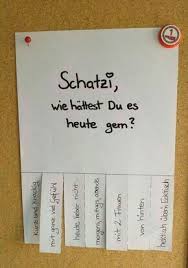 Schatzi,
wie hättest Du es
heute gern?
kurz und knackig
mit ganz viel Gefühl
heute lieber nicht
morgens, mittags, abends
mit 2 Frauen
von hinten